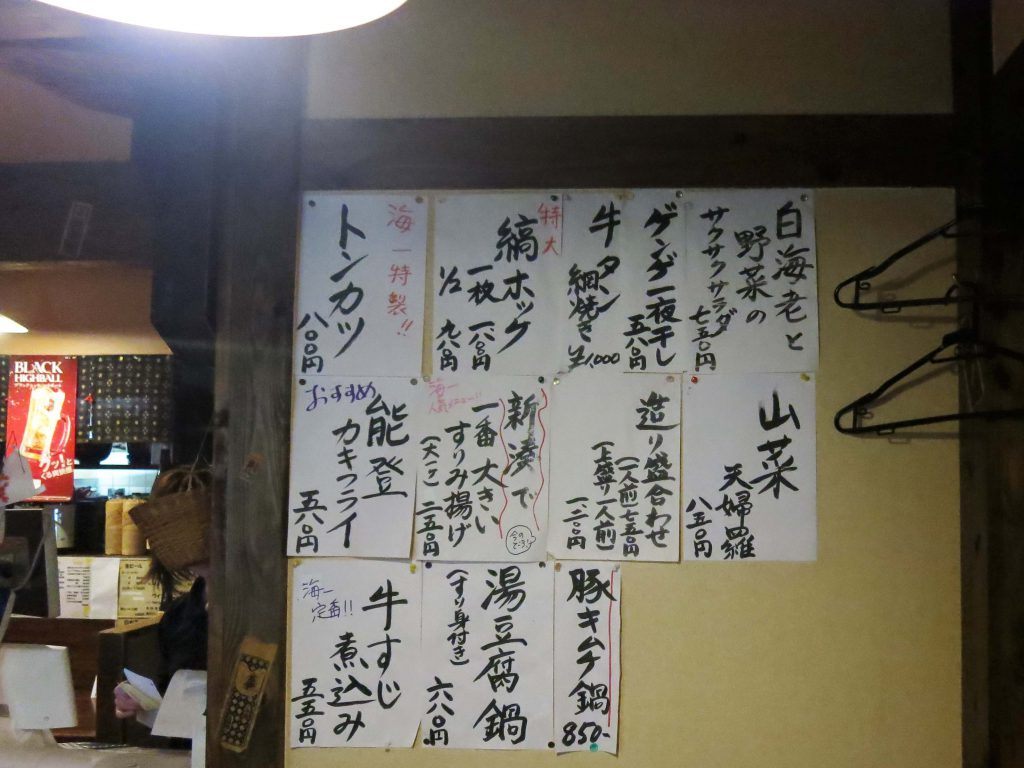 白海老と
野菜の
サクサクサラダ
七五〇円
ゲンゲ一夜干し
五八〇円
牛タン
網焼き
¥1,000
特大
縞ホッケ
一枚 一八〇〇円
1/2 九八〇円
海一特製!!
トンカツ
八〇〇円
山菜
天婦羅
八五〇円
造り盛合わせ
(一人前)七五〇円
(上盛り一人前)
一二〇〇円
新湊で
一番大きい
すり身揚げ
(大一ケ)二五〇円
今のところ!
海一
おすすめ
能登
カキフライ
五八〇円
豚キムチ鍋
850-
湯豆腐鍋
(すり身付き)
六八〇円
海一
定番!!
牛すじ
煮込み
五五〇円
BLACK
HIGHBALL
グッ!と